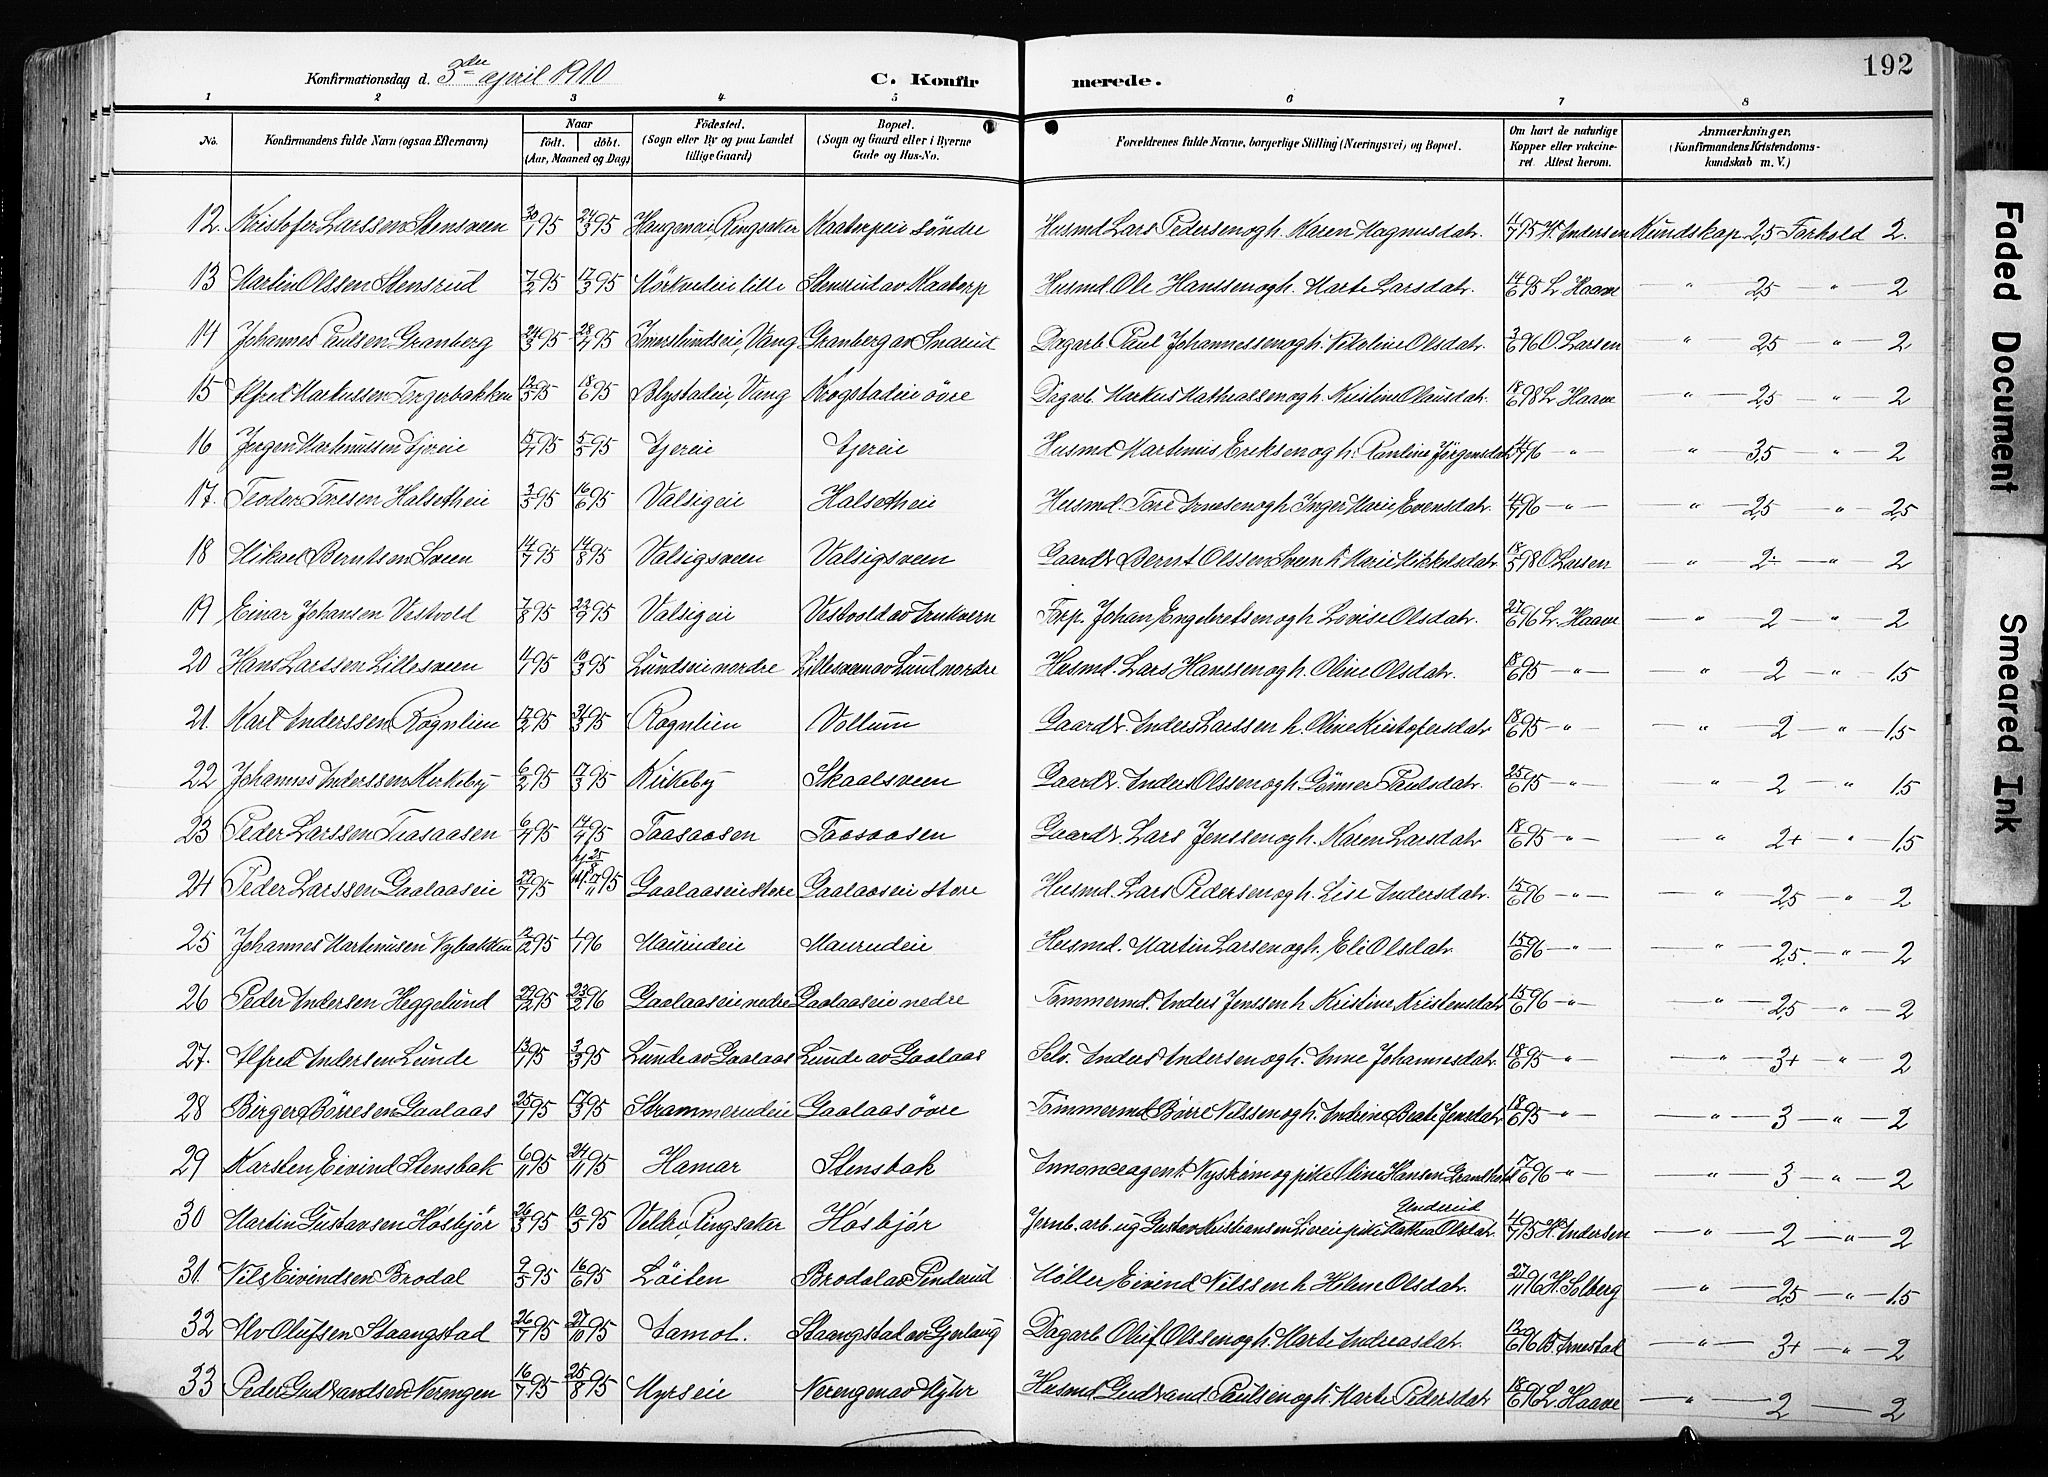 192
Konfirmationsdag d. 3die april 1910 C. Konfirmerede.
1 2 3 4 5 6 7 8
No. Konfirmandens fulde Navn (ogsaa Efternavn) Naar født. døbt. (Aar, Maaned og Dag) Fødested. (Sogn eller By og paa Landet tillige Gaard) Bopæl. (Sogn og Gaard eller i Byerne Gade og Hus-No. Forældrenes fulde Navne, borgerlige Stilling (Næringsvei) og Bopæl. Om havt de naturlige Kopper eller vakcineret. Attest herom. Anmærkninger. (Konfirmandens Kristendomskundskab m. V.)
12. Kristofer Larssen Stensveen 30/1 95 24/3 95 Haugeneie, Ringsaker Kaaterpeie søndre Husmd Lars Pedersen og h. Karen Magnusdatr. 4/7 95 H. Andersen Kundskap 2,5 Forhold 2.
13 Martin Olssen Stensrud 7/2 95 17/3 95 Mørkveeie lille Stensrud av Kaaterp Husmd. Ole Hanssen og h. Marte Larsdatr. 14/6 95 L Haave " 2,5 " 2
14 Johannes Paulsen Granberg 24/3 95 28/4 95 Imerslundseie, Vang Granberg av Smarud Dagarb. Paul Johannessen og h. Nikoline Olsdatr. 3/6 96 O Larsen " 2,5 " 2
15 Alfred Markussen Torgerbakken 12/5 95 18/6 95 Blystadeie, Vang Krogstadeie øvre Dagarb. Markus Matheassen og h. Kristine Olausdatr. 18/6 98 L Haave " 2,5 " 2
16 Jørgen Martinussen Gjereie 15/4 95 5/5 95 Gjereie Gjereie Husmd Martinus Eriksen og h. Pauline Jørgensdatr 4/4 96 " " 3,5 " 2
17. Teoder Toresen Halsetheie 3/5 95 16/6 95 Valsigeie Halsetheie Husmd. Tore Arnesen og h Inger Marie Evensdatr. 4/4 96 " " 2,5 " 2,5
18 Mikael Berntsen Sveen 14/7 95 14/8 95 Valsigsveen Valsigsveen Gaardbr Bernt Olssen Sveen h Marie Mikkelsdatr 18/5 98 O Larsen " 2 " 2
19 Einar Johansen Vestvold 7/8 95 22/9 95 Valsigeie Vestvold av Arnkvern Forp. Johan Engebretsen og h. Lovise Olsdatr. 27/6 96 L. Haave " 2 " 2
20 Hans Larssen Lillesveen 4/1 95 10/3 95 Lundseie nordre Lillesveen av Lund nordre Husmd. Lars Hanssen og h. Oline Olsdatr. 18/6 95 " " 2 " 1,5
21. Karl Anderssen Rognlien 17/2 95 31/3 95 Rognlien Vollum Gaardbr. Anders Larssen h. Oline Kristofersdatr 18/6 95 " " 2 " 1,5
22 Johannes Anderssen Kirkeby 6/2 95 17/3 95 Kirkeby Skaalsveen Gaardbr. Anders Olssen og h. Gønner Paulsdatr. 25/6 95 " " 2 " 1,5
23 Peder Larssen Taasaasen 6/4 95 14/4 95 Taasaasen Taasaasen Gaardbr. Lars Jenssen og h. Karen Larsdatr 18/6 95 " " 2+ " 1,5
24 Peder Larssen Gaalaaseie 22/7 95 hj. 25/8 17/11 95 Gaalaaseie store Gaalaaseie store Husmd. Lars Pedersen og h. Lise Andersdatr. 15/6 96 " " 2,5 " 2
25 Johannes Martinusen Nybakken 12/12 95 96 Maurudeie Maurudeie Husmd. Martin Larsen og h. Eli Olsdatr. 15/6 96 " " 2,5 " 2
26 Peder Andersen Heggelund 29/12 95 23/2 96 Gaalaaseie nedre Gaalaaseie nedre Tømmermd. Anders Jenssen h Kristine Kristensdatr 15/6 96 " " 2,5 " 2
27. Alfred Andersen Lunde 13/1 95 3/3 95 Lunde av Gaalaas Lunde av Gaalaas Selv. Anders Andersen og h. Anne Johannesdatr. 18/6 95 " " 3+ " 2
28 Birger Børresen Gaalaas 25/1 95 17/3 95 Strammerudeie Gaalaas øvre Tømmermd Børre Nilssen og h. Andrine Beate Jensdatr 18/6 95 " " 3 " 2
29 Karsten Eivind Stensbak 6/11 95 24/11 95 Hamar Stensbak Annonceagent Nystrøm og pike Oline Hansen 17/6 96 " " 3 " 2
30 Martin Gustavsen Høsbjør 26/3 95 10/5 95 Veldre, Ringsaker Høsbjør Jernb. arb. ug Gustav Kristiansen Lieeie pike Mathea Olsdatr. 4/7 95 H. Andersen " 2 " 2
31. Nils Eivindsen Brodal 9/5 95 16/6 95 Løiten Brodal av Pinderud Møller Eivind Nilssen h Helene Olsdatr. 27/11 96 H. Solberg " 2,5 " 1,5
32 Alv Olufsen Staangstad 26/7 95 27/10 95 Aamot. Staangstad av Gjerlaug Dagarb Oluf Olssen og h. Marte Andreasdatr. 12/6 96 B. Arnestad " 3+ " 2
33 Peder Gudvandsen Nerengen 16/7 95 25/8 95 Myrseie Nerengen av Myhr Husmd Gudvand Paulsen og h. Marte Pedersdatr 18/6 96 L. Haave " 2 " 2
Faded Document
Smeared Ink